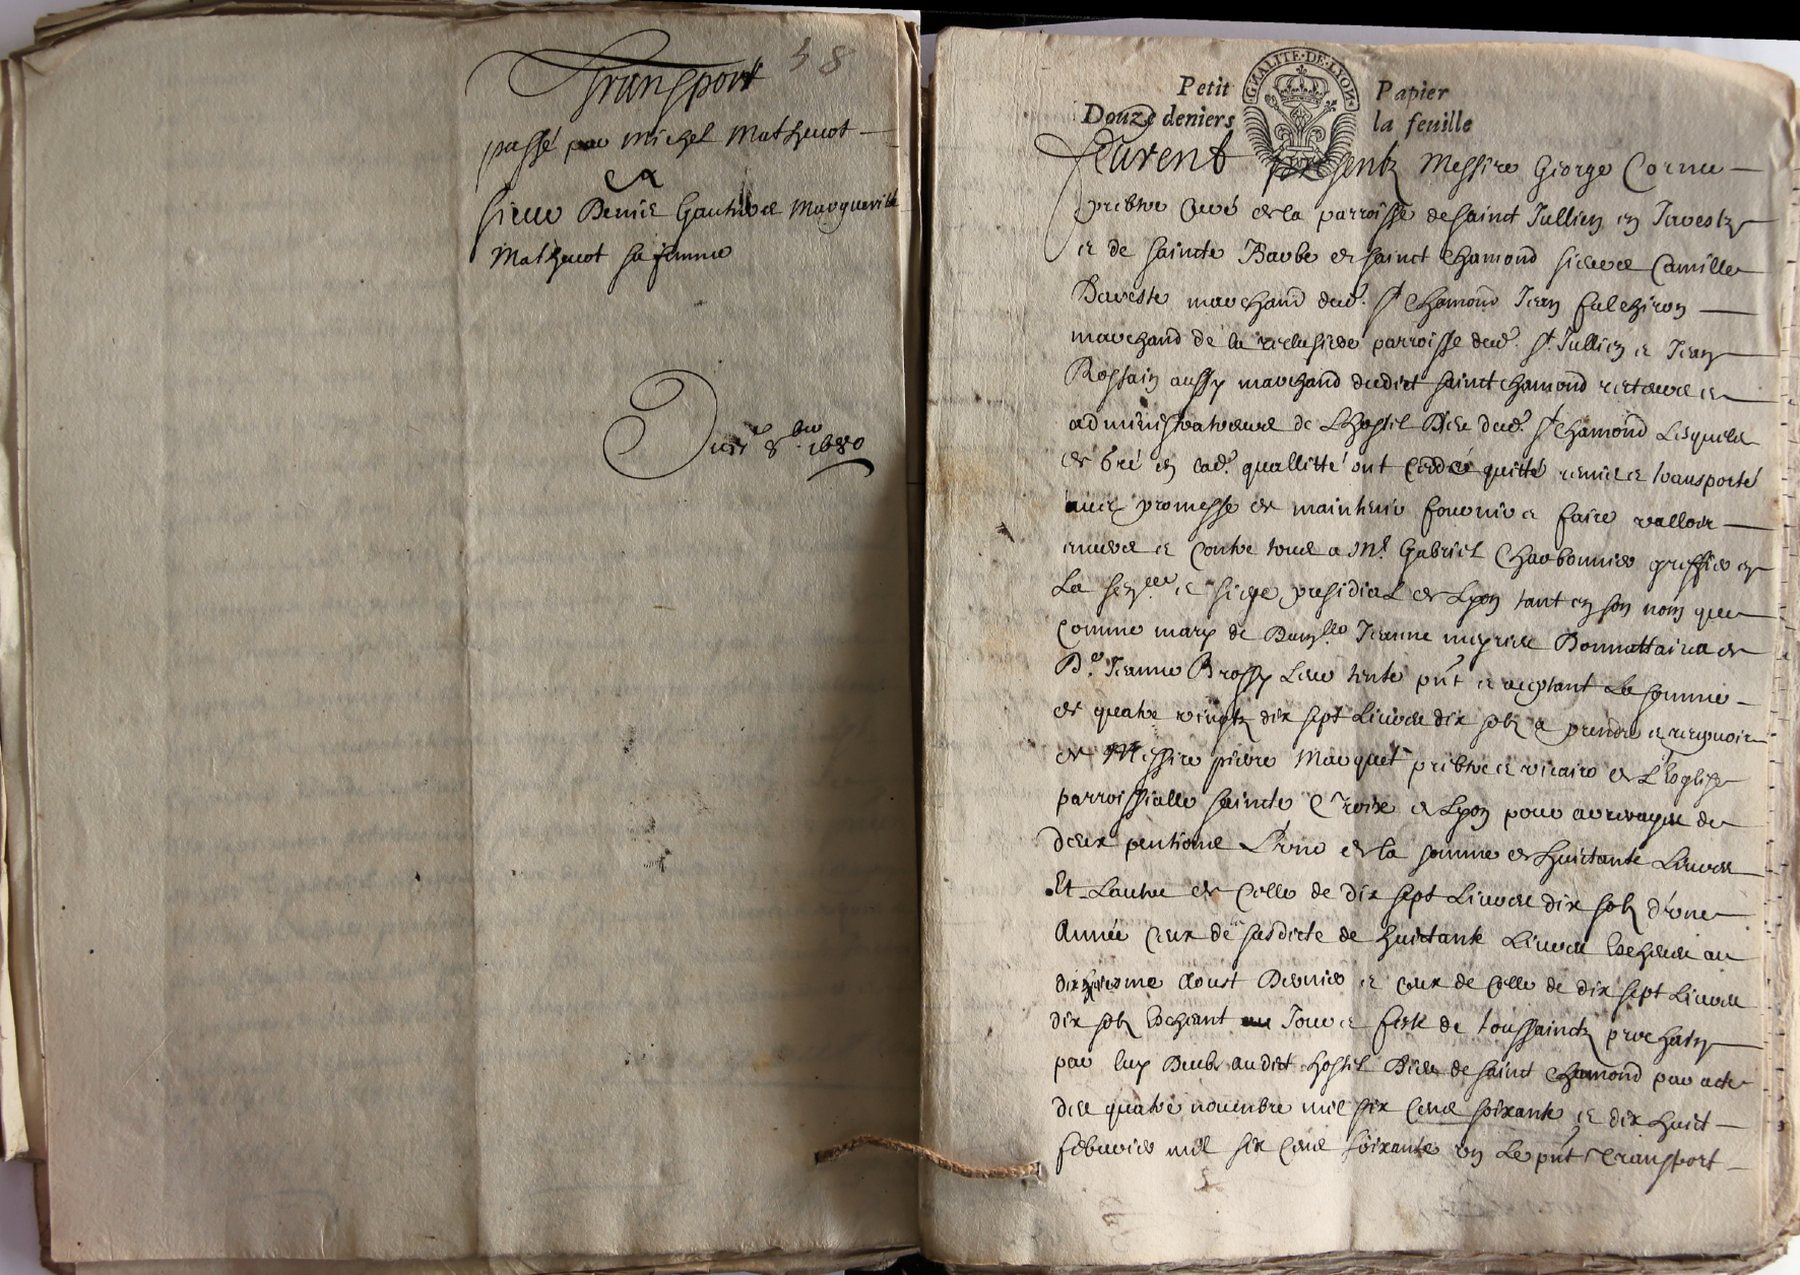 Transport 58
passé par Michel Mathevot
a
sieur Denis Gautier Marguerite
Mathevot sa femme
Du 8bre 1680
GNALITE·DE·LYON·
Petit Papier
Douze deniers la feuille
Furent presentz Messire George Cornu
prebtre curé de la parroisse de Saint Jullien en Jarestz
et de Saincte Barbe de Sainct Chamond sieurs Camille
marchand dud. St Chamond Jean Fulchiron
marchand de la parroisse dud. St. Jullien et Jean
Rossain aussy marchand dudict Sainct Chamond recteurs et
administrateurs de L'hostel Dieu dud. St Chamond Lesquels
de gré en lad. quallitté ont ceddé quitté remis et transporté
avec promesse de maintenir fournir et faire valloir
envers et contre tous a Mr. Gabriel Charbonnier greffier en
La Senee. et siege presidial de Lyon tant en son nom que
comme mary de Damlle Jeanne Donnattaire de
De. Jeanne Brossy Leur tente pnt et acceptant La somme
de quatre vingtz dix sept Livres dix solz a prendre et recepvoir
de Messire pierre Marquet prebtre et vicaire de L'Eglise
parroissialle Saincte Croix de Lyon pour arrerages de
deux pentions L'une de la somme de huictante Livres
Et Lautre de celle de dix sept Livres dix solz d'une
Année ceux de sus dicte de huictante Livres Escheus au
aoust Dernier et ceux de celle de dix sept Livres
dix solz Escheant au Jour et feste de toussainctz prochain
par luy Deubz audit hostel Dieu de Saint Chamond par acte
des quatre novembre mil six cens soixante et dix huict
febvrier mil six cens soixante un Le pnt Transport